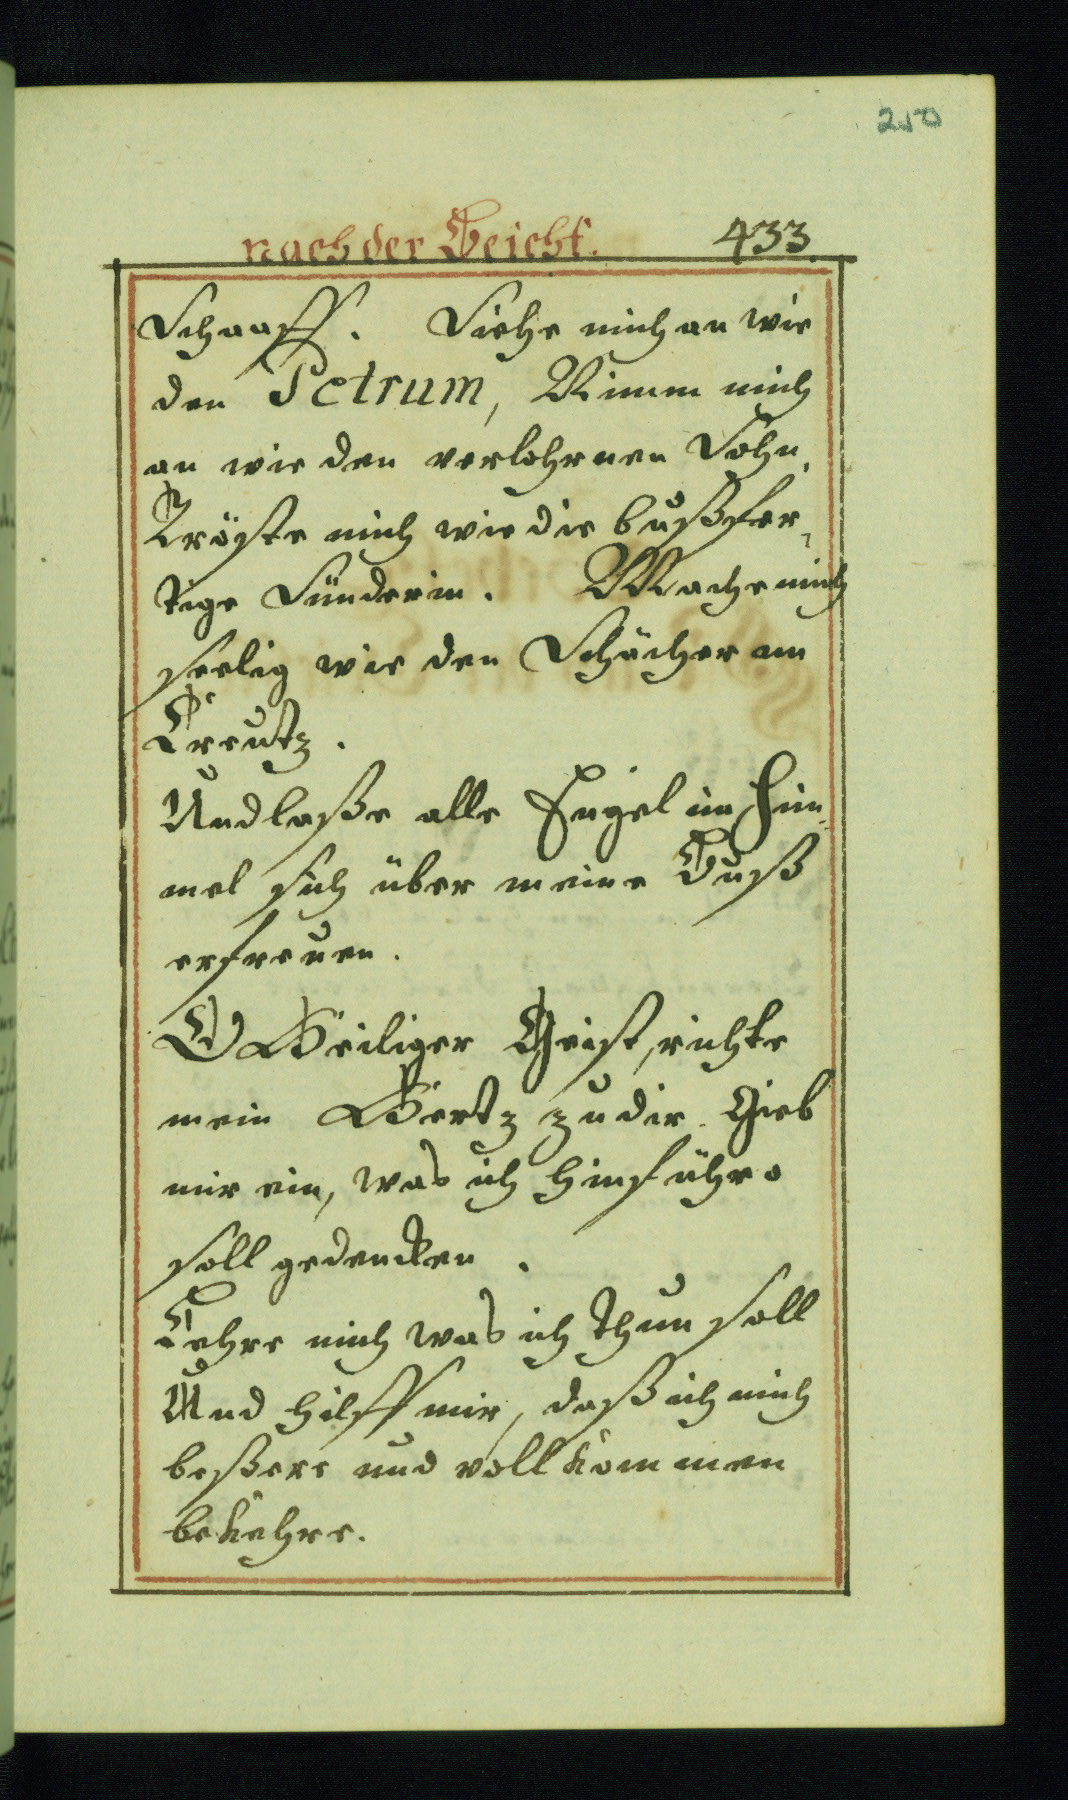 250
nach der Beicht. 433.
Schaaff. Siehe mich an wie
den Petrum, Nimm mich
an wie den verlohrnen Sohn,
Tröste mich wie die bußfer„
tige Sünderin. Mache mich
seelig wie den Schächer am
Creutz.
Und laße alle Engel im Him„
mel sich über meine Buß
erfreuen.
O Heiliger Geist, richte
mein Hertz zu dir. Gieb
mir ein, was ich hinführo
soll gedencken.
Lehre mich was ich thun soll
Und hilff mir, daß ich mich
beßere und vollkommen
bekehre.